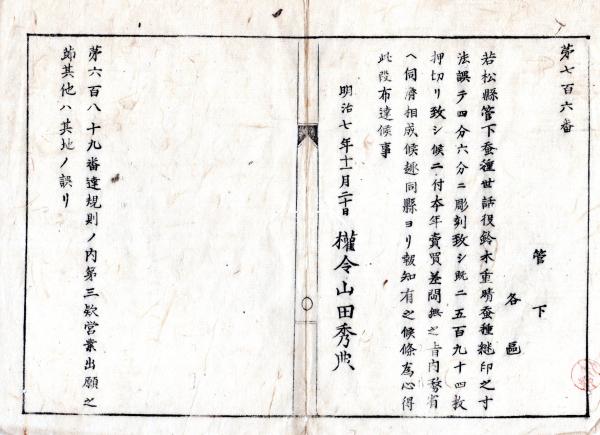 第七百六番
管下
各區
若松縣管下蚕種世話役鈴木重晴蚕種継印之寸
法誤テ四分六分ニ彫刻致シ既ニ五百九十四枚
押切リ致シ候ニ付本年賣買差閊無之旨内務省
ヘ伺済相成候趣同縣ヨリ報知有之候條為心得
此段布達候事
明治七年十一月二十日
權令山田秀典
第六百八十九番達規則ノ内第三欵営業出願之
節其他ハ其地ノ誤リ